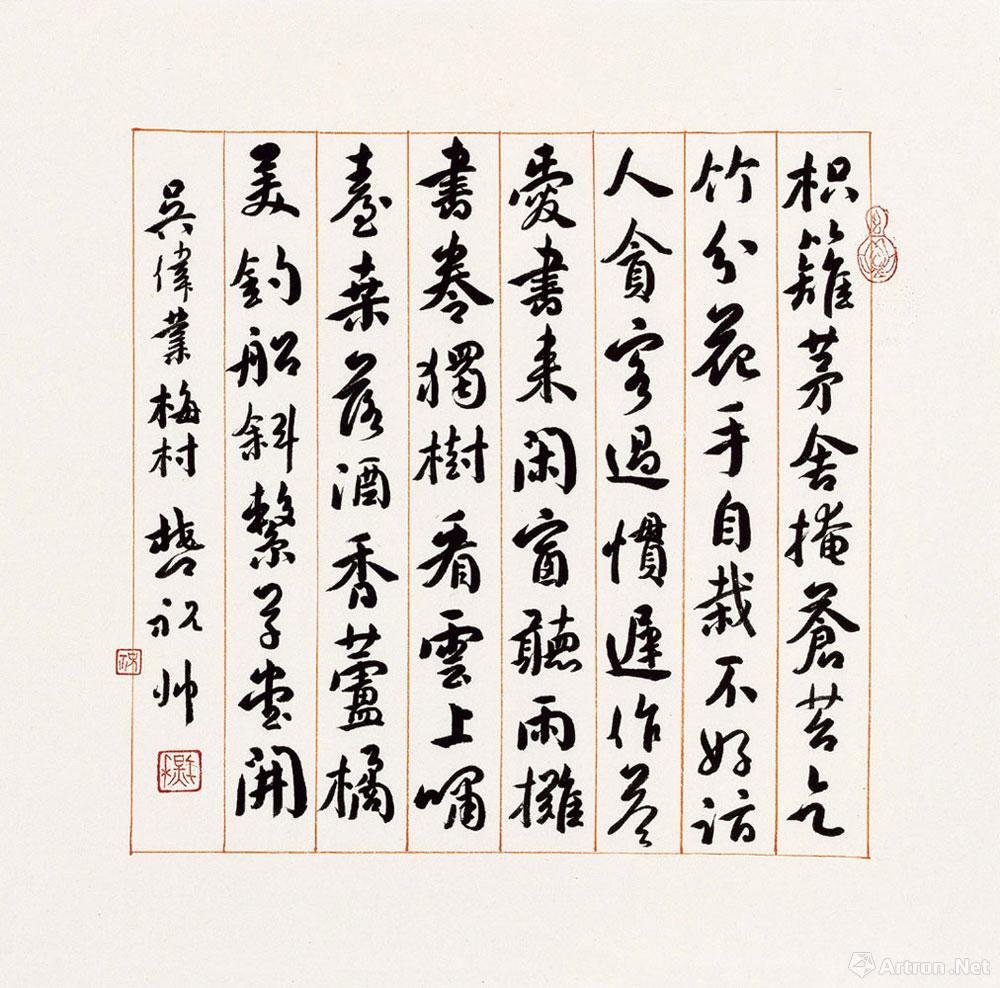 枳籬茅舍掩蒼苔乞
竹分花手自栽不好詣
人貪客過慣遲作答
愛書来閑窗聽雨攤
書卷獨樹看雲上嘯
臺桒落酒香蘆橘
美釣船斜繫草堂開
吳偉業梅村 祝帅
Artron.Net